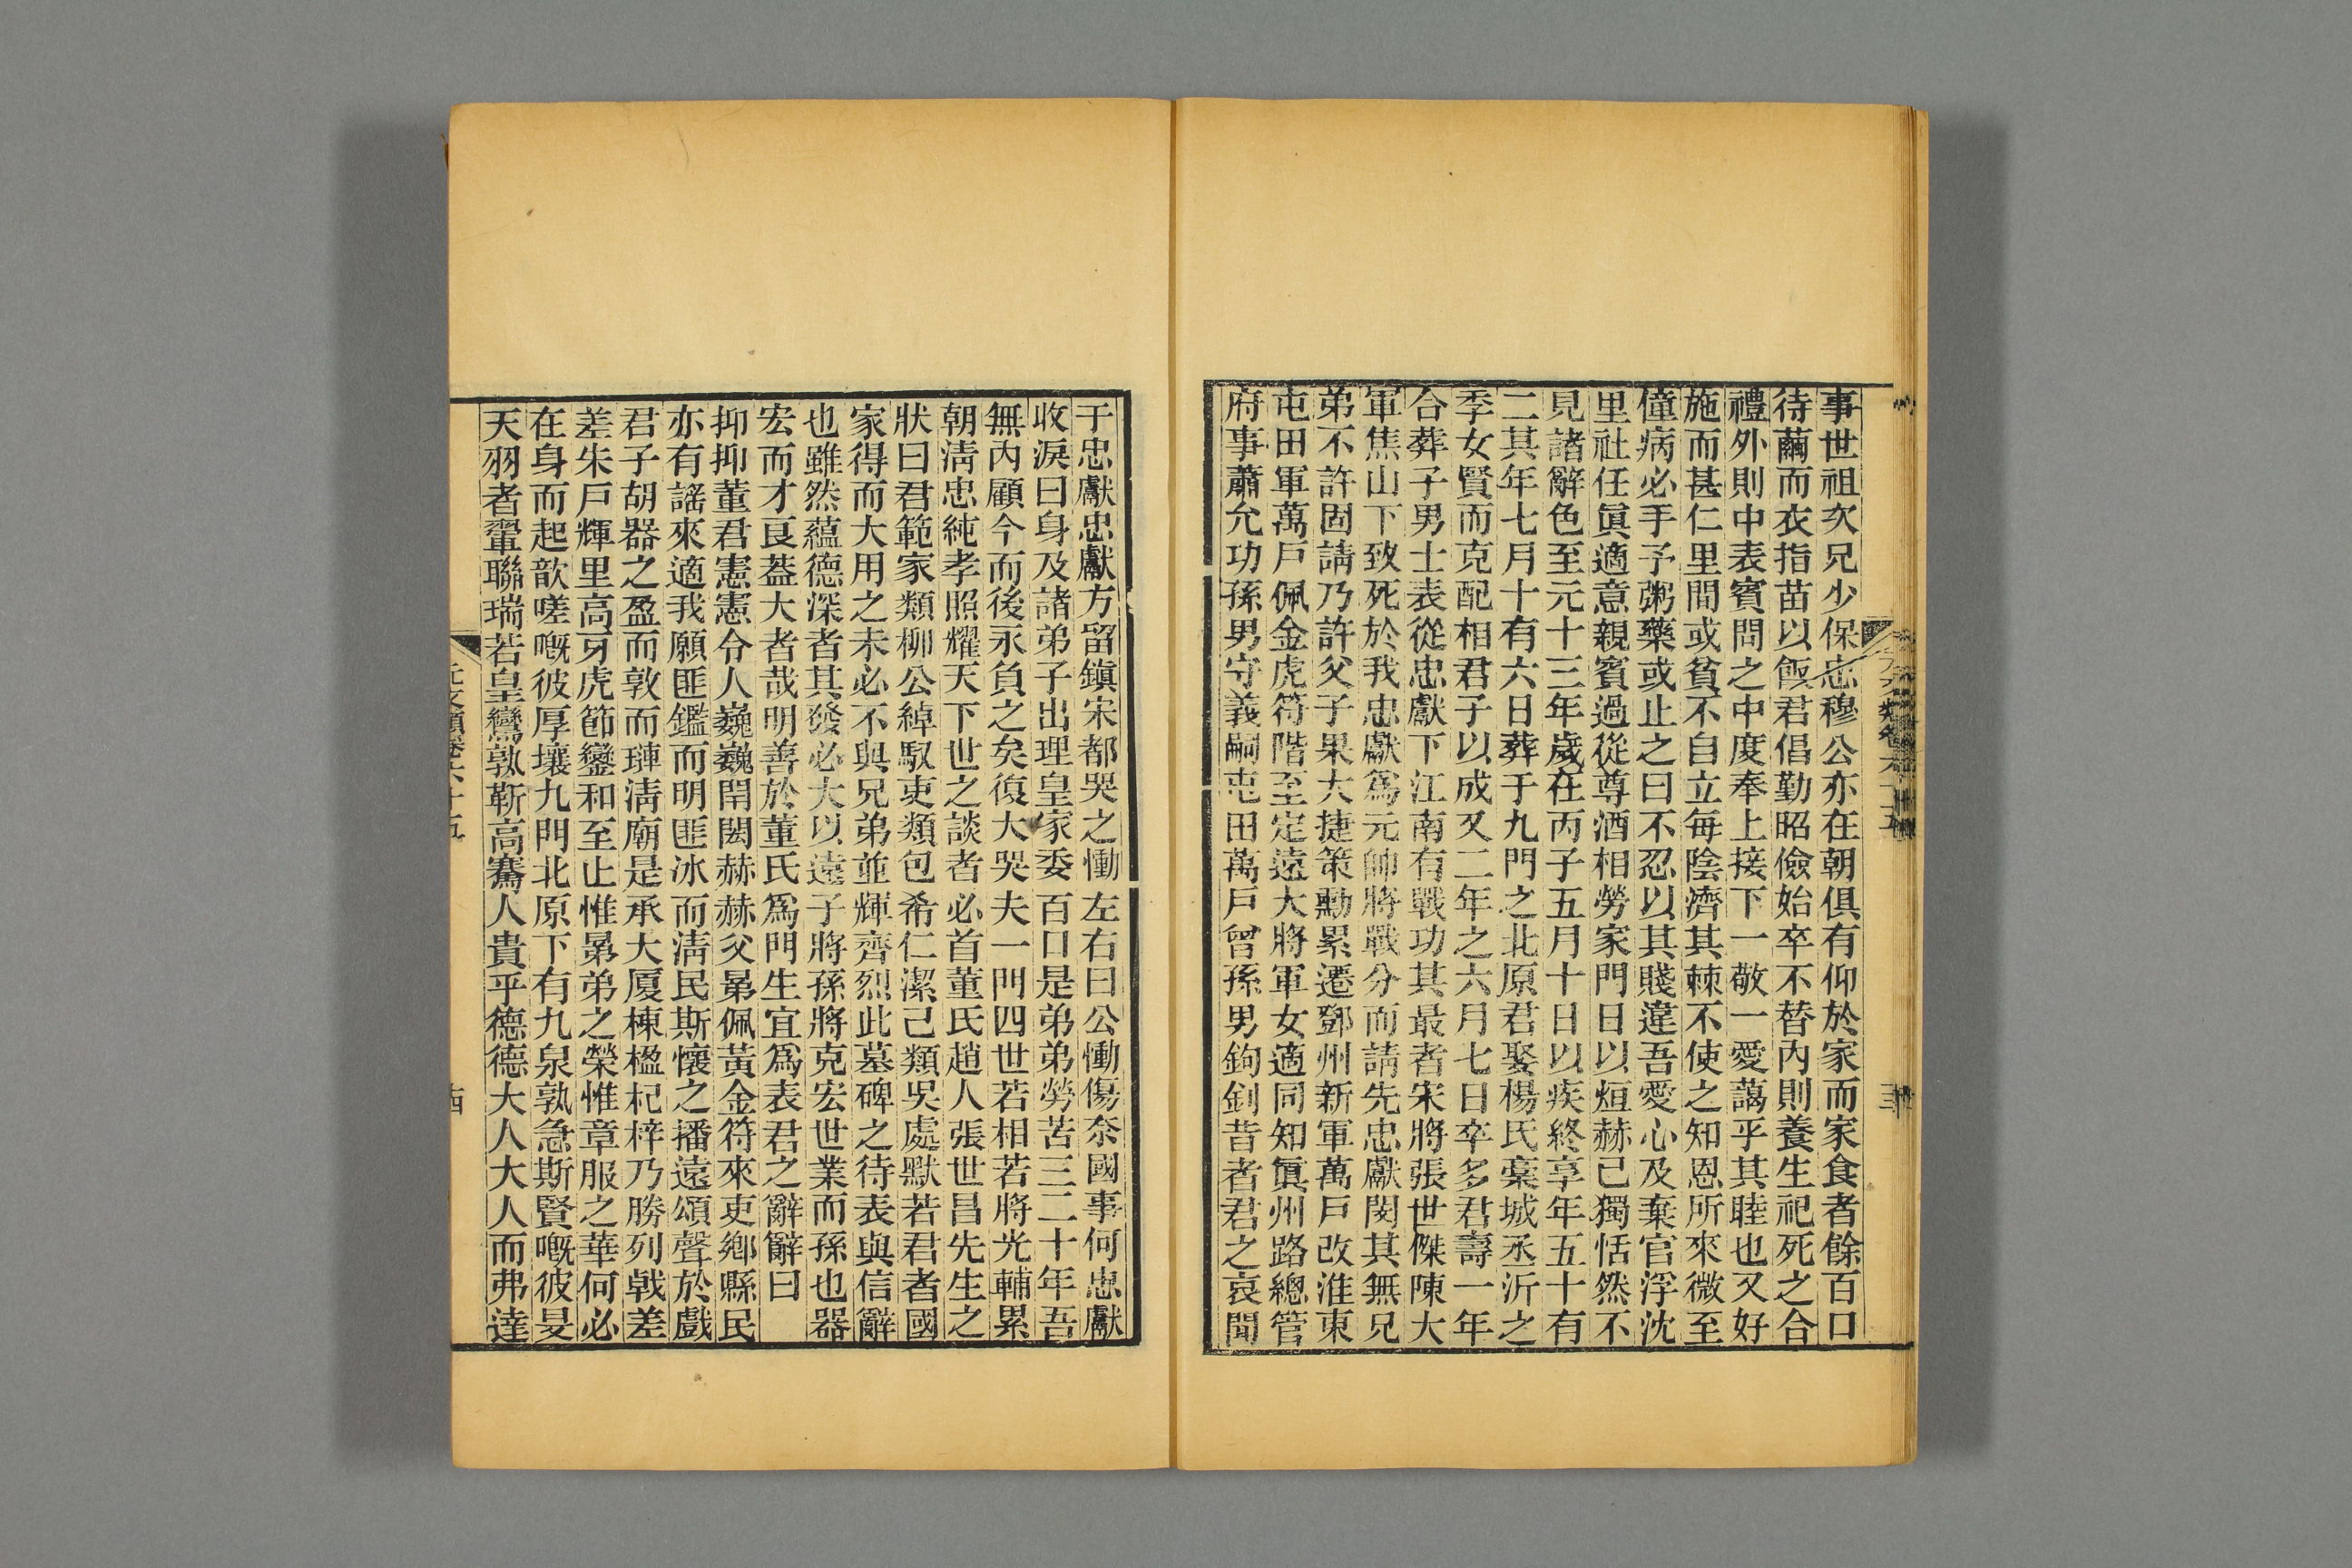 事世祖次兄少保忠穆公亦在朝俱有仰於家而家食者餘百口
待繭而衣指苗以飯君倡勤昭儉始卒不替內則養生祀死之合
禮外則中表賓問之中度奉上接下一敬一愛藹乎其睦也又好
施而甚仁里閒或貧不自立每陰濟其棘不使之知恩所來微至
僮病必手予粥藥或止之曰不忍以其賤違吾愛心及棄官浮沈
里社任眞適意親賓過從尊酒相勞家門日以烜赫己獨恬然不
見諸辭色至元十三年歲在丙子五月十日以疾終享年五十有
二其年七月十有六日葬于九門之北原君娶楊氏藁城丞沂之
季女賢而克配相君子以成又二年之六月七日卒多君壽一年
合葬子男士表從忠獻下江南有戰功其最者宋將張世傑陳大
軍焦山下致死於我忠獻爲元帥將戰分而請先忠獻閔其無兄
弟不許固請乃許父子果大捷策勳累遷鄧州新軍萬戶改淮東
屯田軍萬戶佩金虎符階至定遠大將軍女適同知眞州路總管
府事蕭允功孫男守義嗣屯田萬戶曾孫男鉤釗昔者君之哀聞
于忠獻忠獻方留鎭宋都哭之慟左右曰公慟傷奈國事何忠獻
收淚曰身及諸弟子出理皇家委百口是弟弟勞苦三二十年吾
無內顧今而後永負之矣復大哭夫一門四世若相若將光輔累
朝淸忠純孝照耀天下世之談者必首董氏趙人張世昌先生之
狀曰君範家類柳公綽馭吏類包希仁潔己類吳處默若君者國
家得而大用之未必不與兄弟並輝齊烈此墓碑之待表與信辭
也雖然蘊德深者其發必大以遠子將孫將克宏世業而孫也器
宏而才良蓋大者哉明善於董氏爲門生宜爲表君之辭辭曰
抑抑董君憲憲令人巍巍閈閎赫赫父㬎佩黃金符來吏鄕縣民
亦有謠來適我願匪鑑而明匪冰而淸民斯懷之播遠頌聲於戲
君子胡器之盈而敦而璉淸廟是承大厦棟楹杞梓乃勝列戟差
差朱戶輝里高牙虎節鑾和至止惟㬎弟之榮惟章服之華何必
在身而起歆嗟嘅彼厚壤九門北原下有九泉孰急斯賢嘅彼旻
天羽者翬聯瑞若皇鸞孰靳高騫人貴乎德德大人大人而弗達